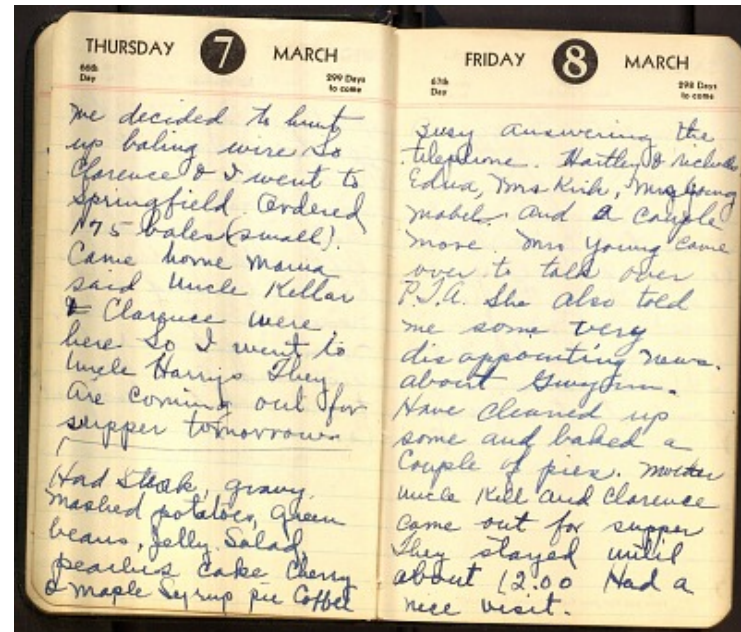 THURSDAY 7 MARCH
66th Day
299 Days to come
me decided to hunt
up baling wire So
Clarence & I went to
Springfield Ordered
175 bales (small).
Came home Mama
said Uncle Kellar
& Clarence were
here So I went to
Uncle Harrys They
are coming out for
supper tomorrow
Had Steak, gravy,
mashed potatoes, green
beans, Jelly Salad,
peaches cake Cherry
& Maple Syrup pie Coffee
FRIDAY 8 MARCH
67th Day
298 Days to come
Busy answering the
telephone. Hartley &
Edna, Mrs Kirk, Mrs Young
Mabel and a couple
more. Mrs Young came
over to talk over
P.T.A. She also told
me some very
disappointing news.
about
Have cleaned up
some and baked a
Couple of pies. Mother
Uncle Kell and Clarence
came out for supper
They stayed until
about 12.00 Had a
nice visit.